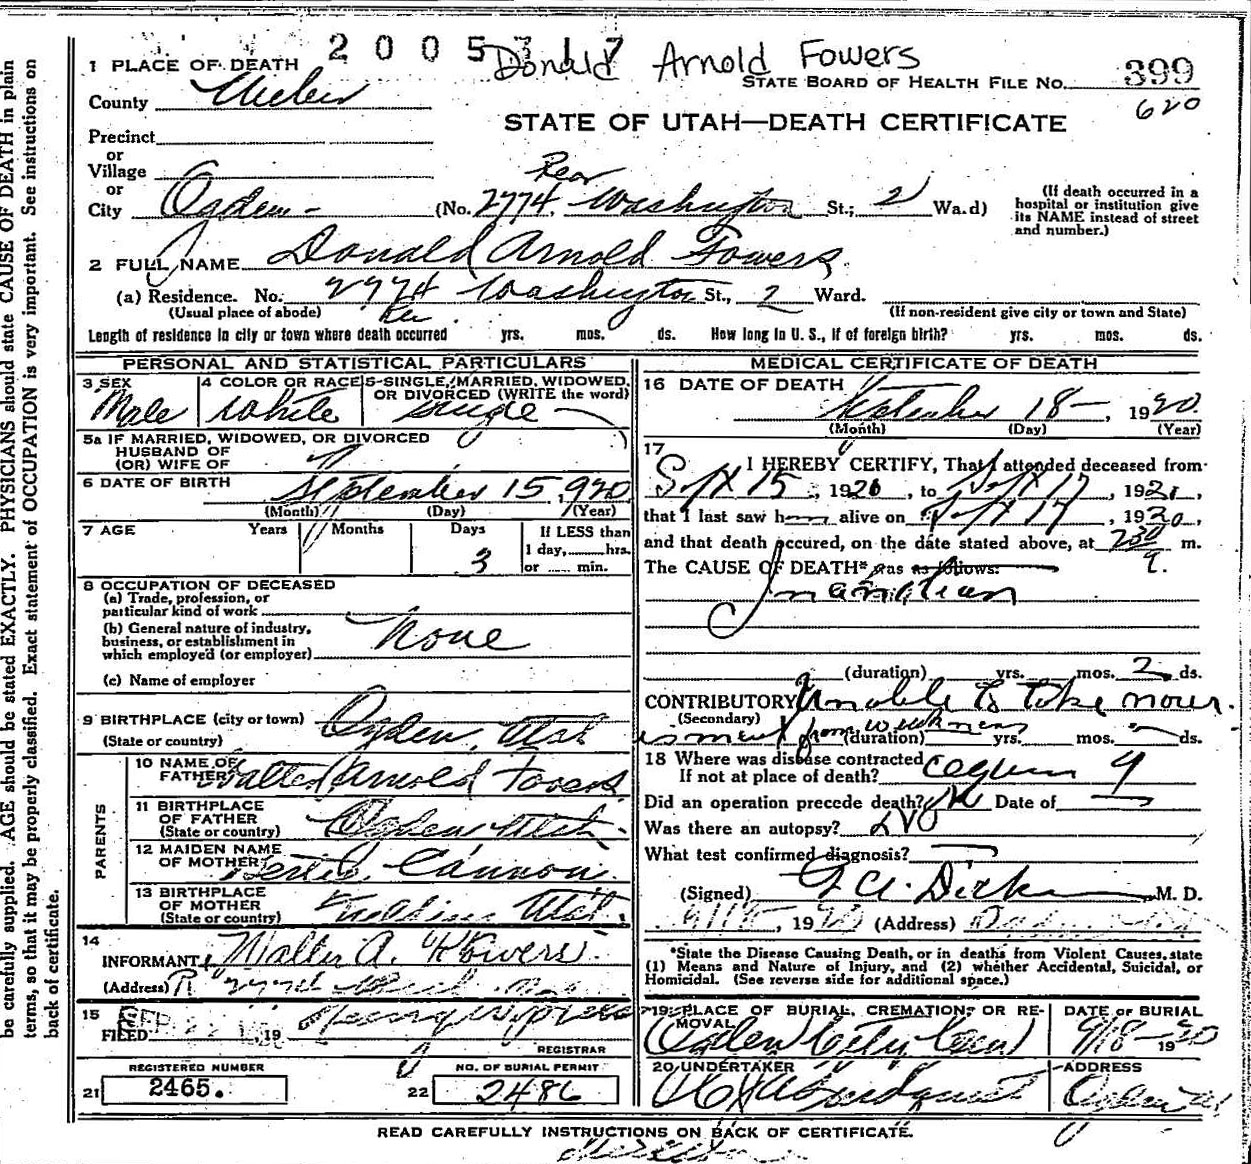 2005317 Donald Arnold Fowers
1 PLACE OF DEATH
STATE BOARD OF HEALTH FILE No. 399
County Weber
620
STATE OF UTAH—DEATH CERTIFICATE
Precinct
or
Village
or
City Ogden (No. 2774 Rear Washington St.; 2 Ward)
(If death occurred in a hospital or institution give its NAME instead of street and number.)
2 FULL NAME Donald Arnold Fowers
(a) Residence. No. 2774 Washington St., 2 Ward.
(Usual place of abode)
(If non-resident give city or town and State)
Length of residence in city or town where death occurred yrs. mos. ds. How long in U. S., if of foreign birth? yrs. mos. ds.
PERSONAL AND STATISTICAL PARTICULARS
3 SEX Male
4 COLOR OR RACE White
5-SINGLE, MARRIED, WIDOWED, OR DIVORCED (WRITE the word) Single
5a IF MARRIED, WIDOWED, OR DIVORCED
HUSBAND OF
(OR) WIFE OF
6 DATE OF BIRTH September 15, 920
(Month) (Day) (Year)
7 AGE Years Months Days 3
If LESS than
1 day, hrs.
or min.
8 OCCUPATION OF DECEASED
(a) Trade, profession, or
particular kind of work
(b) General nature of industry,
business, or establishment in
which employed (or employer) None
(c) Name of employer
9 BIRTHPLACE (city or town) Ogden, Utah
(State or country)
PARENTS
10 NAME OF FATHER Walter Arnold Fowers
11 BIRTHPLACE OF FATHER Ogden Utah.
(State or country)
12 MAIDEN NAME OF MOTHER Cannon
13 BIRTHPLACE OF MOTHER Utah.
(State or country)
14
INFORMANT Walter A. Fowers
(Address)
15
FILED SEP 22 19
REGISTRAR
REGISTERED NUMBER
21 2465.
NO. OF BURIAL PERMIT
22 2486
MEDICAL CERTIFICATE OF DEATH
16 DATE OF DEATH September 18-, 1920.
(Month) (Day) (Year)
17
I HEREBY CERTIFY, That I attended deceased from
Sept 15, 1920, to Sept 17, 1920,
that I last saw him alive on Sept 17, 1920,
and that death occured, on the date stated above, at 230 m.
The CAUSE OF DEATH* was as follows:
Inanition
(duration) yrs. mos. 2 ds.
CONTRIBUTORY Unable to take nour
(Secondary)
ishment from weakness (duration) yrs. mos. ds.
18 Where was disease contracted
If not at place of death?
Did an operation precede death? No Date of
Was there an autopsy? No
What test confirmed diagnosis?
(Signed) M. D.
, 1920 (Address)
*State the Disease Causing Death, or in deaths from Violent Causes, state
(1) Means and Nature of Injury, and (2) whether Accidental, Suicidal, or
Homicidal. (See reverse side for additional space.)
19 PLACE OF BURIAL, CREMATION, OR REMOVAL Ogden City Cem
DATE OF BURIAL 9/18-1920
20 UNDERTAKER
ADDRESS Ogden Ut
READ CAREFULLY INSTRUCTIONS ON BACK OF CERTIFICATE.
be carefully supplied. AGE should be stated EXACTLY. PHYSICIANS should state CAUSE OF DEATH in plain
terms, so that it may be properly classified. Exact statement of OCCUPATION is very important. See instructions on
back of certificate.